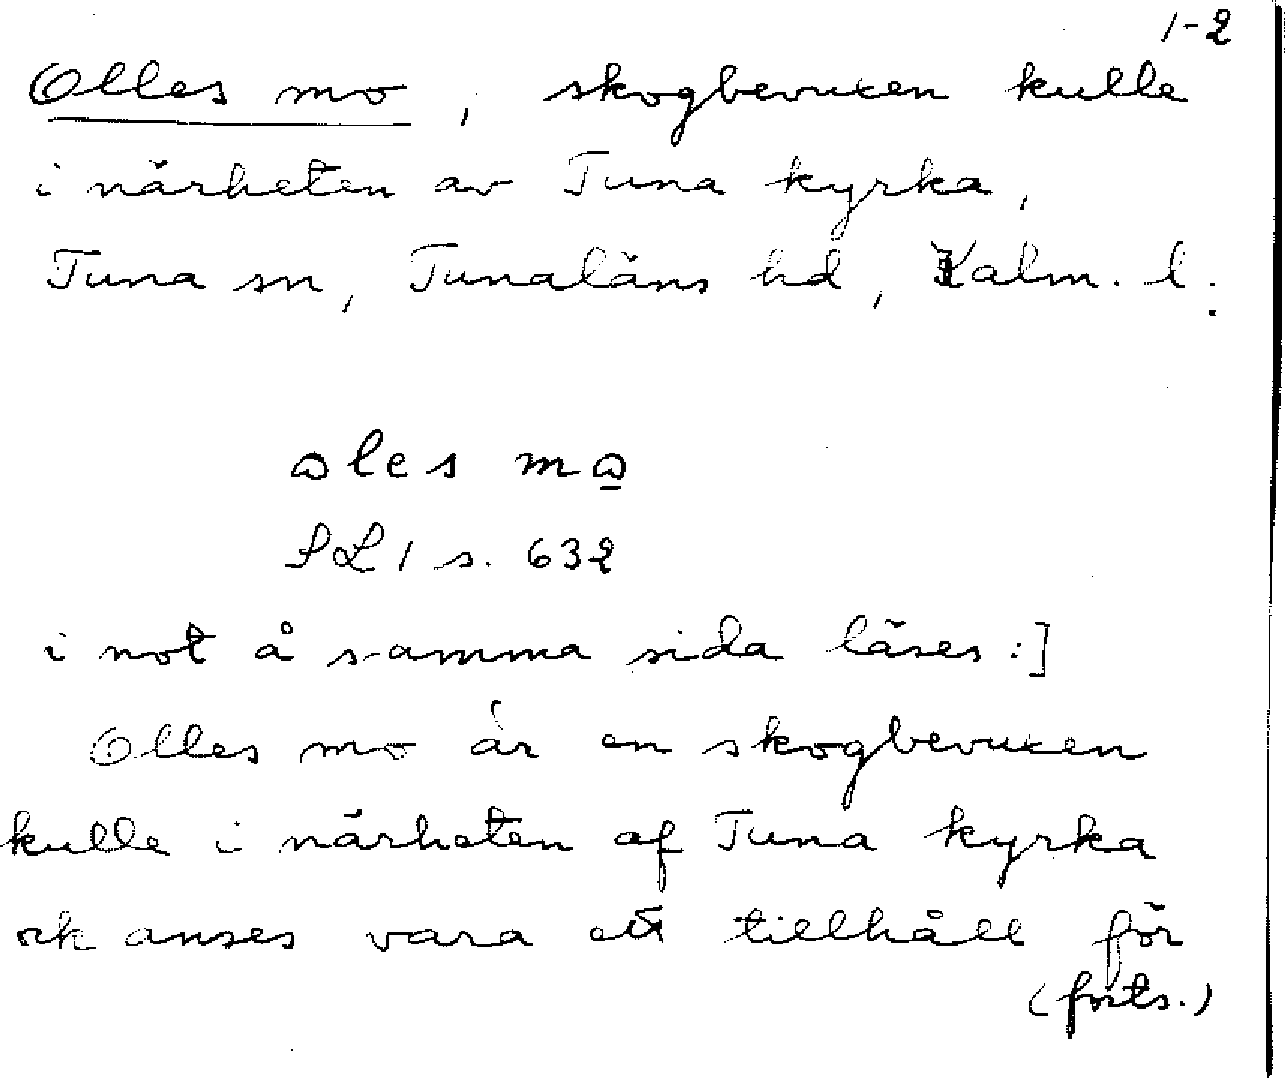 1-2
Olles mo, skogbevuxen kulle
i närheten av Tuna kyrka,
Tuna sn, Tunaläns hd, Kalm. l.
ɷles mɷ̱
SL 1 s. 632
i not å samma sida läses:]
Olles mo är en skogbevuxen
kulle i närheten af Tuna kyrka
ock anses vara ett tillhåll för
(forts.)